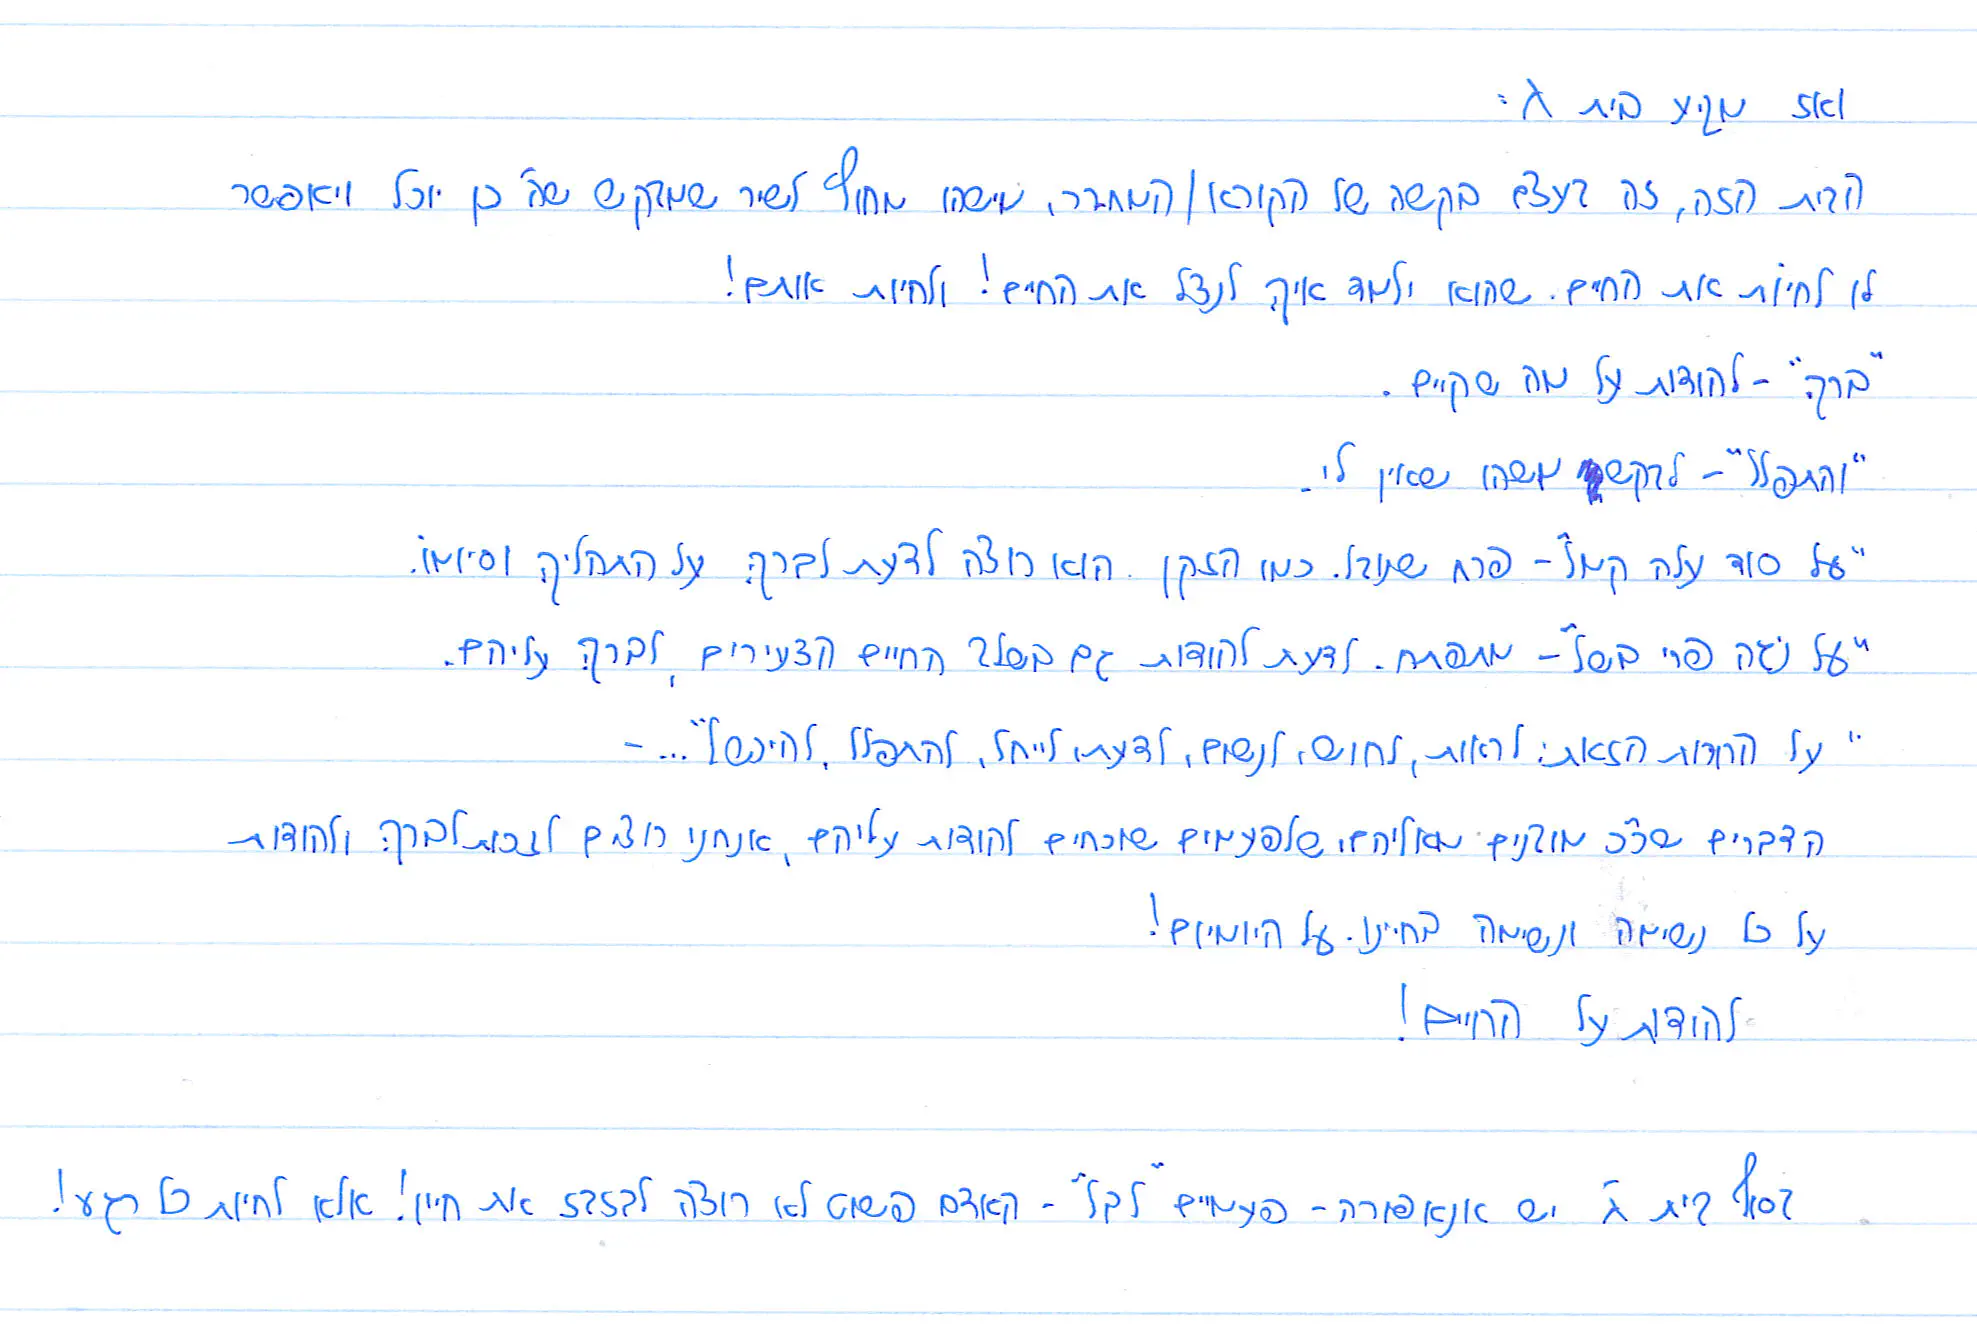 ואז מגיע בית ג':
הבית הזה, זה בעצם בקשה של הקורא/המחבר, מישהו מחוץ לשיר שמבקש שה' כן יוכל ויאפשר
לו לחיות את החיים. שהוא ילמד איך לנצל את החיים! ולחיות אותם!
"ברך" - להודות על מה שקיים.
"והתפלל" - לבקש משהו שאין לי.
"על סוד עלה קמל" - פרח שנובל. כמו הזקן. הוא רוצה לדעת לברך על התהליך וסיומו.
"על נגה פרי בשל" - מתפתח. לדעת להודות גם בשלב החיים הצעירים, לברך עליהם.
"על החרות הזאת: לראות, לחוש, לנשום, לדעת, לייחל, להתפלל, להיכשל"... -
הדברים שכ"כ מובנים מאליהם, שלפעמים שוכחים להודות עליהם, אנחנו רוצים לזכות לברך ולהודות
על כל נשימה ונשימה בחיינו. על היומיום!
להודות על החיים!
בסוף בית ג' יש אנאפורה - פעמיים "לבל" - האדם פשוט לא רוצה לבזבז את חייו! אלא לחיות כל רגע!